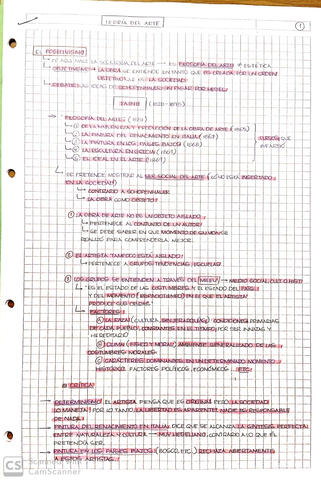 TEORÍA DEL ARTE
①
EL POSITIVISMO
DE AQUÍ NACE LA SOCIOLOGÍA DEL ARTE → ES FILOSOFÍA DEL ARTE ≠ ESTÉTICA
OBJETIVISMO → LA OBRA SE ENTIENDE EN TANTO QUE ES CREADA POR UN ORDEN
OBJETIVO: ES LA SOCIEDAD
REBATE LAS IDEAS DE SCHOPENHAUER SIN PASAR POR HEGEL
TAINE (1828-1893)
FILOSOFÍA DEL ARTE:
① DE LA NATURALEZA Y PRODUCCIÓN DE LA OBRA DE ARTE (1865)
② LA PINTURA DEL RENACIMIENTO EN ITALIA
③ LA PINTURA EN LOS PAÍSES BAJOS (1868)
④ LA ESCULTURA EN GRECIA (1869)
⑤ EL IDEAL EN EL ARTE
CURSOS QUE
IMPARTIÓ
SE PRETENDE MOSTRAR AL SER SOCIAL DEL ARTE (CÓMO ESTÁ INSERTADO
EN LA SOCIEDAD)
CONTRARIO A SCHOPENHAUER
LA OBRA COMO OBJETO
① LA OBRA DE ARTE NO ES UN OBJETO AISLADO
PERTENECE AL CONJUNTO DE UN AUTOR
SE DEBE SABER EN QUE MOMENTO DE SU
REALIZÓ PARA COMPRENDERLA MEJOR
② EL ARTISTA TAMPOCO ESTÁ AISLADO
PERTENECE A GRUPOS, TENDENCIAS, ESCUELAS
③ LOS GRUPOS SE ENTIENDEN A TRAVÉS DEL MEDIO → MEDIO SOCIAL, CULT. O HIST.
"ES EL ESTADO DE LAS COSTUMBRES Y EL ESTADO DEL PAÍS
Y DEL MOMENTO EN EL QUE EL ARTISTA
PRODUCE SUS OBRAS"
FACTORES:
Ⓐ LA RAZA (CULTURA): CONDICIONES PRIMARIAS
DE CADA PUEBLO, CONSTANTES EN EL TIEMPO POR SER INNATAS Y
HEREDITARIO
Ⓑ CLIMA (FÍSICO Y MORAL) AMBIENTE GENERALIZADO DE LAS
COSTUMBRES MORALES
Ⓒ CARACTERES DOMINANTES EN UN DETERMINADO MOMENTO
HISTÓRICO: FACTORES POLÍTICOS, ECONÓMICOS, ETC.
CRÍTICA
DETERMINISMO: EL ARTISTA PIENSA QUE ES PERO LA SOCIEDAD
LO MANEJA. POR LO TANTO, LA LIBERTAD ES APARENTE, NADIE ES RESPONSABLE
DE NADA
PINTURA DEL RENACIMIENTO EN ITALIA: DICE QUE SE ALCANZA LA SÍNTESIS PERFECTA
ENTRE NATURALEZA Y CULTURA → MUY HEGELIANO, CONTRARIO A LO QUE ÉL
PRETENDÍA SER
PINTURA EN LOS PAÍSES BAJOS (BOSCO, ETC.) RECHAZA ABIERTAMENTE
A ESTOS ARTISTAS
CS Scanned with
CamScanner